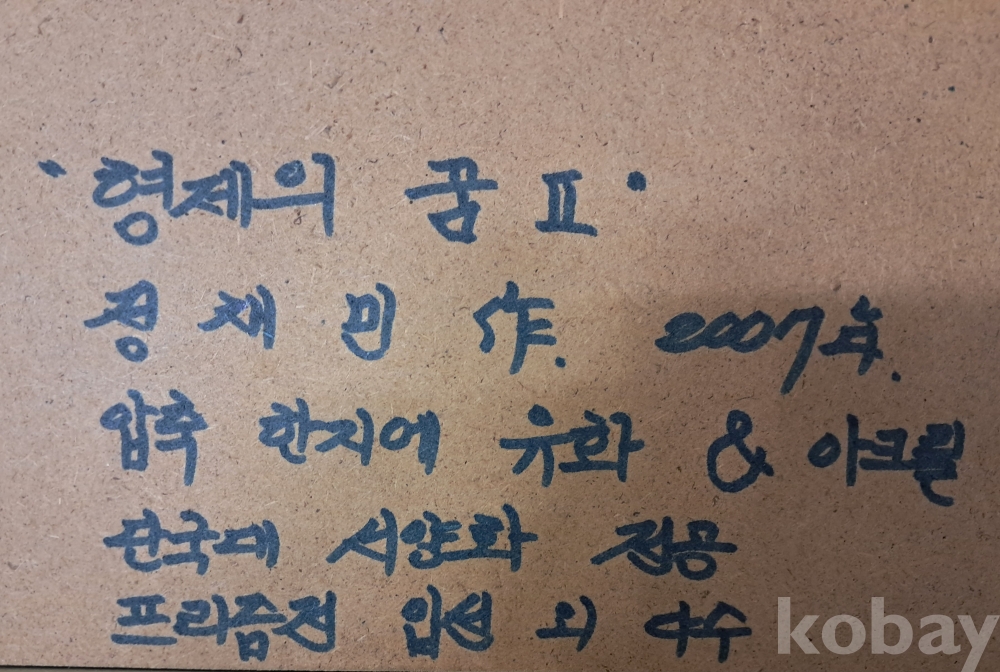 '형제의 꿈 II'
정재민 作. 2007年.
압축 한지에 유화 & 아크릴
단국대 서양화 전공
프리즘전 입선 외 다수
kobay